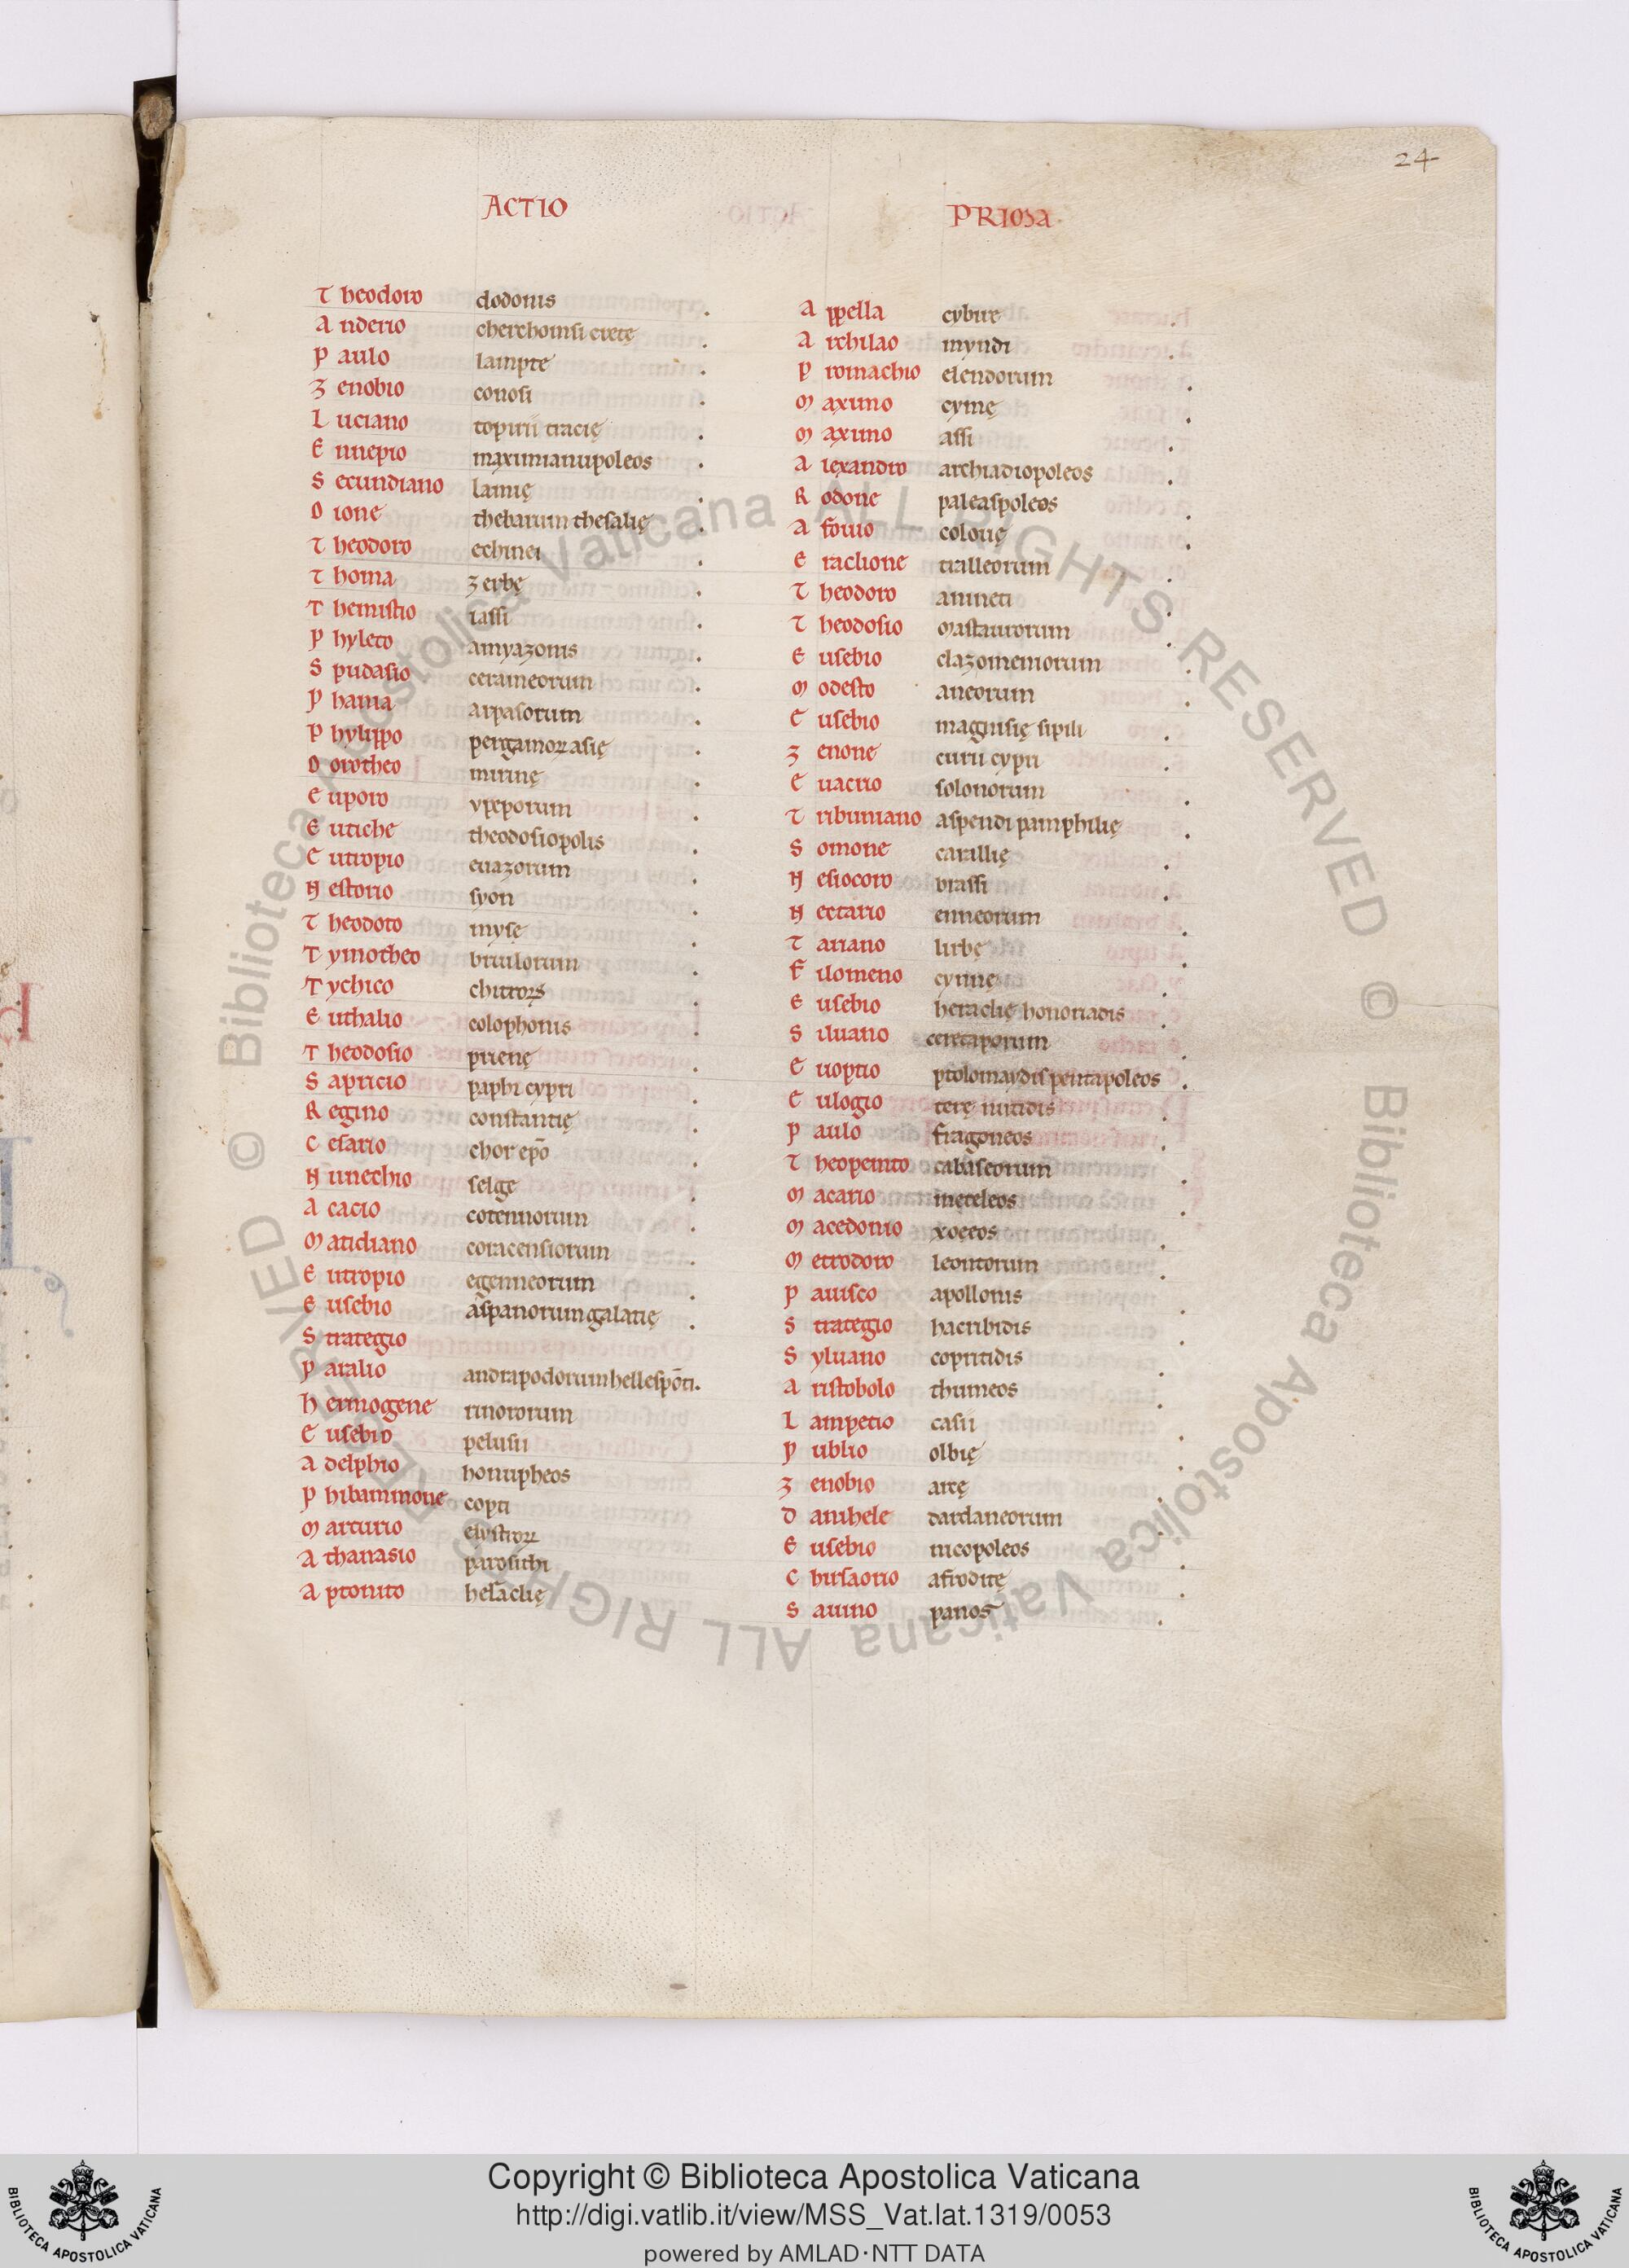 24
ACTIO PRIMA
Theodoro dodonis
Anderio cherchoinsi crete
Paulo lampte
Zenobio conosi
Luciano topirii tracię
Ennepio maximianupoleos
Secundiano lamię
Dione thebarum thesalię
Theodoro echinei
Thoma zerbę
Themistio iassi
Phyleto amyazonis
Spudasio cerameorum
Phania arpasorum
Phylippo pergamoꝝ asię
Dorotheo mirinę
Euporo ypeporum
Eutiche theodosiopolis
Eutropio euazorum
Nestorio syon
Theodoto nysę
Tymotheo briulorum
Tychico
Euthalio colophonis
Theodosio prienę
Sapricio paphi cypri
Regino constantię
Cesario chor epō
Nunechio selge
Acacio cotennorum
Matidiano coracensiorum
Eutropio egenneorum
Eusebio āspanorum galatię
Strategio
Paralio andrapodorum hellespōti.
Hermogene rinororum
Eusebio pelusii
Adelphio honupheos
Phibammone copti
Marturio
Athanasio parosithi
Aptonito
Appella cybire
Archilao myndi
Promachio elendorum
Maximo cymę
Maximo assi
Alexandro archiadiopoleos
Rodone paleaspoleos
Afonio colonę
Eraclione tralleorum
Theodoro anineti
Theodosio mastaurorum
Eusebio clazomeniorum
Modesto aneorum
Eusebio magnisię sipili
Zenone curii cypri
Euacrio solonorum
Tribuniano aspendi pamphilię
Somone carillię
Nesiocoro
Nectario enneorum
Tariano lirbę
Filomeno cynnę
Eusebio heraclię honoriadis
Siluano ceretaporum
Euoptio ptolomaydis pentapoleos
Eulogio terę nitidis
Paulo fragoneos
Theopemto cabaseorum
Macario męteleos
Macedonio xoeeos
Metrodoro leontorum
Pauisco apollonis
Strategio hacribidis
Syluano copritidis
Aristobolo thumeos
Lampetio casii
Publio olbię
Zenobio arcę
Danihele dardaneorum
Eusebio nicopoleos
Chrisaorio afroditę
Sauino panos
© Biblioteca Apostolica Vaticana ALL RIGHTS RESERVED © Biblioteca Apostolica Vaticana ALL RIGHTS RESERVED
Copyright © Biblioteca Apostolica Vaticana
http://digi.vatlib.it/view/MSS_Vat.lat.1319/0053
powered by AMLAD·NTT DATA
BIBLIOTECA APOSTOLICA VATICANA
BIBLIOTECA APOSTOLICA VATICANA